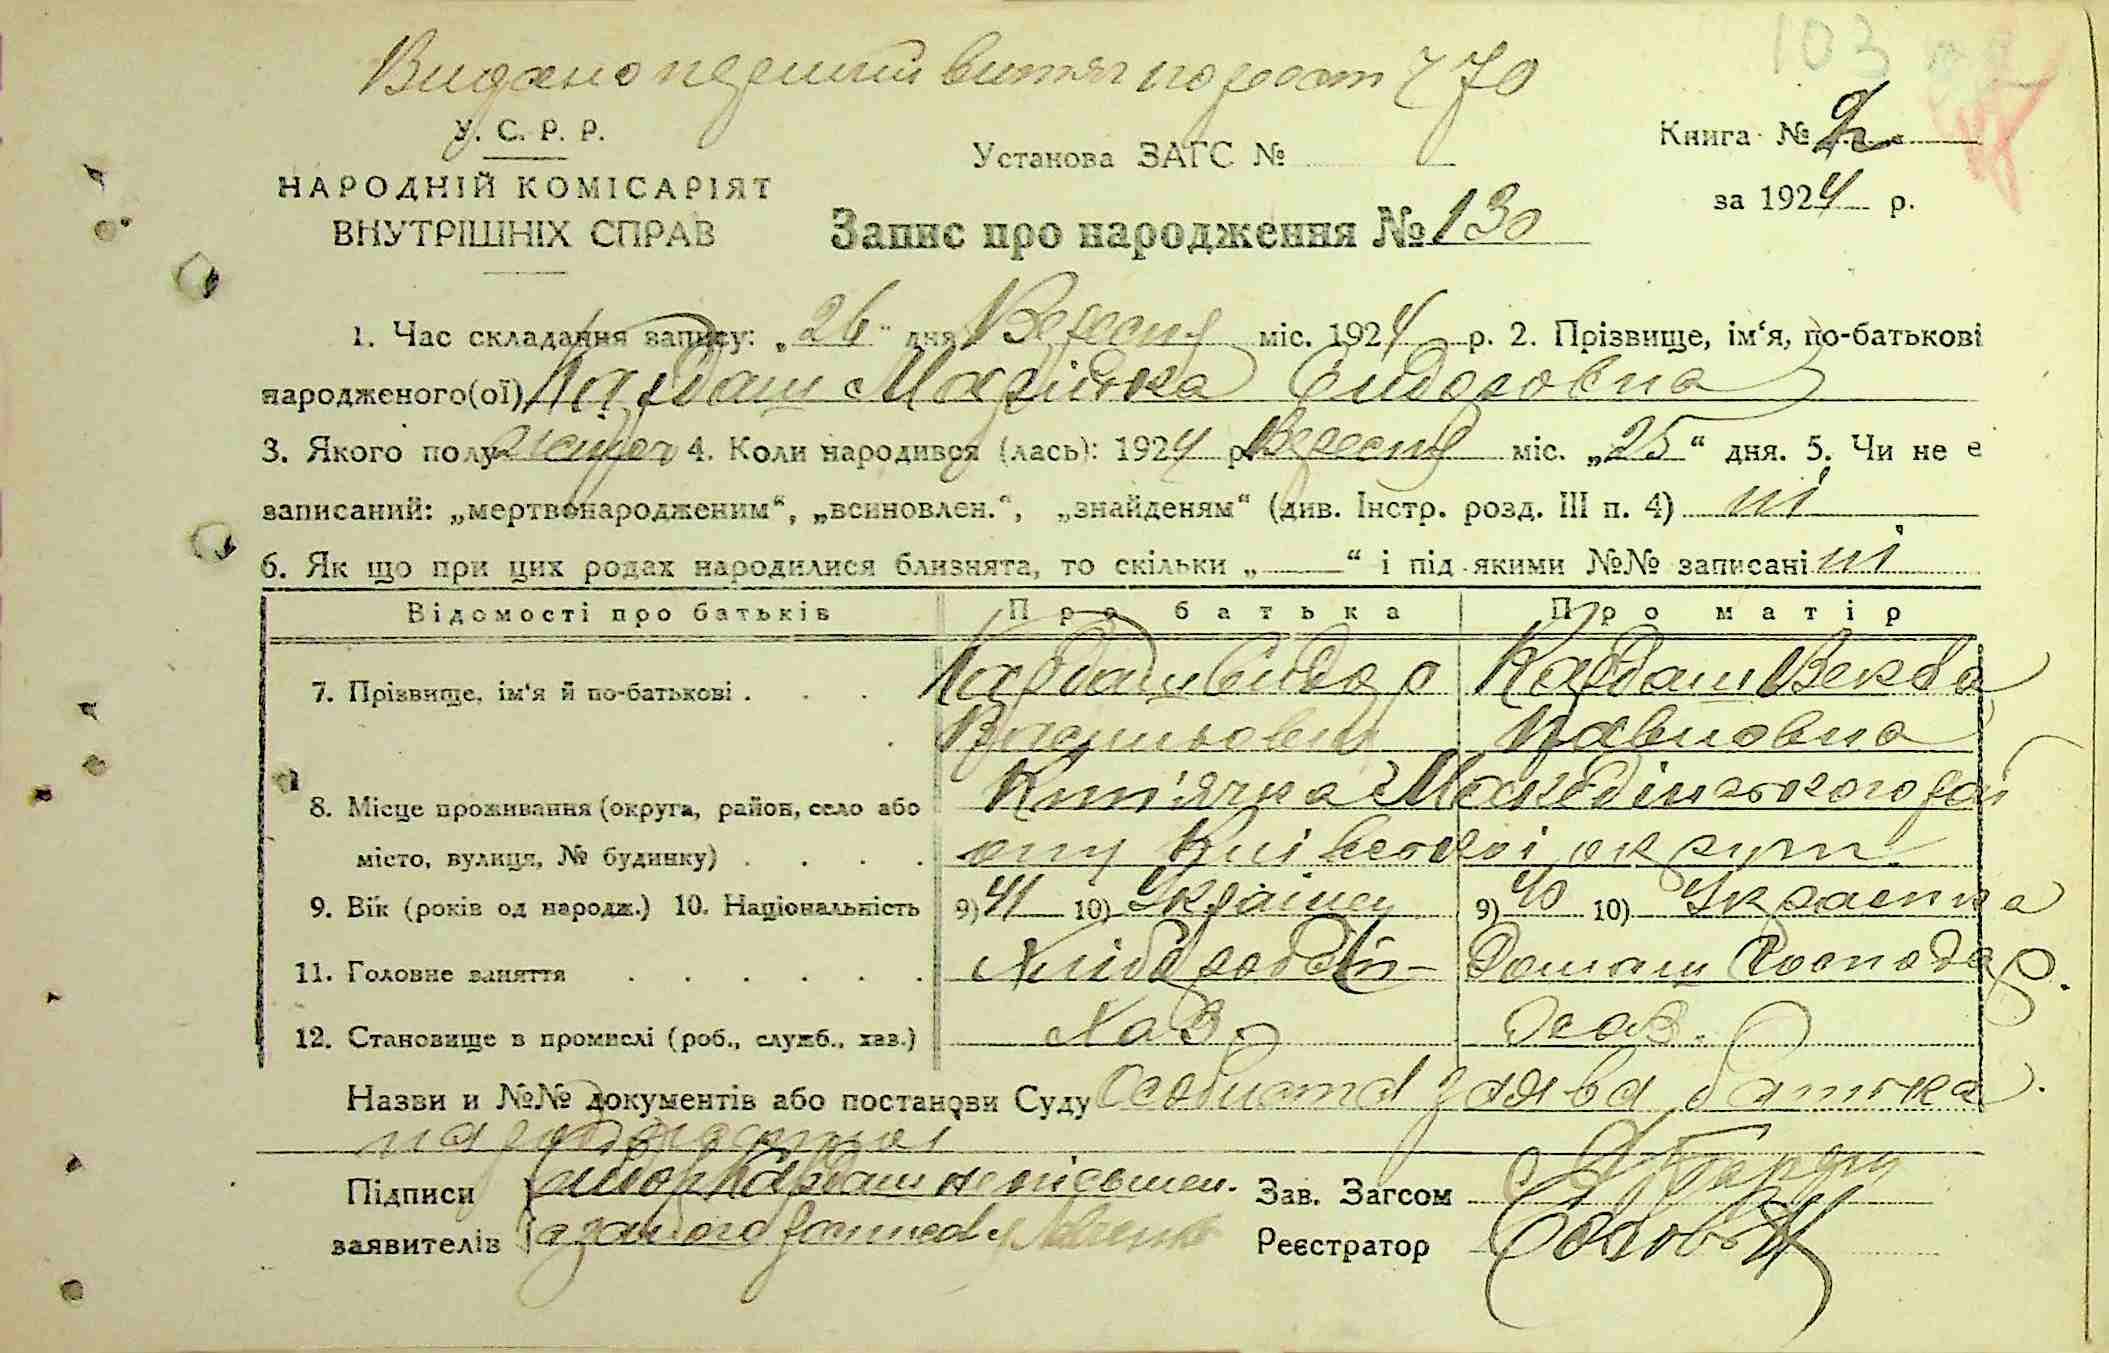 103
Видано перший витяг по реест 770
У. С. Р. Р.
НАРОДНІЙ КОМІСАРІЯТ
ВНУТРІШНІХ СПРАВ
Установа ЗАГС №
Книга № 2
за 1924 р.
Запис про народження № 130
1. Час складання запису: „26" дня Вересня міс. 1924 р. 2. Прізвище, ім'я, по-батькові
народженого(ої) Кардаш Марійка Сидоровна
3. Якого полу 4. Коли народився (лась): 1924 р. Вересня міс. „25“ дня. 5. Чи не є
записаний: „мертвонародженим“, „всиновлен.“, „знайденям“ (див. Інстр. розд. III п. 4) ні
6. Як що при цих родах народилися близнята, то скільки „——“ і під якими №№ записані ні
Відомості про батьків Про батька Про матір
7. Прізвище, ім'я й по-батькові . . . Кардаш Сидор Кардаш Векла
Васильович Павловна
8. Місце проживання (округа, район, село або Кип'ячка Мокодінського рай
місто, вулиця, № будинку) . . . . ону Київської округи
9. Вік (років од народж.) 10. Національність 9) 41 10) Українец 9) 40 10) Украенка
11. Головне заняття . . . . . . Хлібороб Домаш Господар.
12. Становище в промислі (роб., служб., хаз.) Хаз. Хаз.
Назви и №№ документів або постанови Суду Особиста заява батька
Підписи Сидор Кардаш неписьмен.
Зав. Загсом
заявителів а за його
Реєстратор